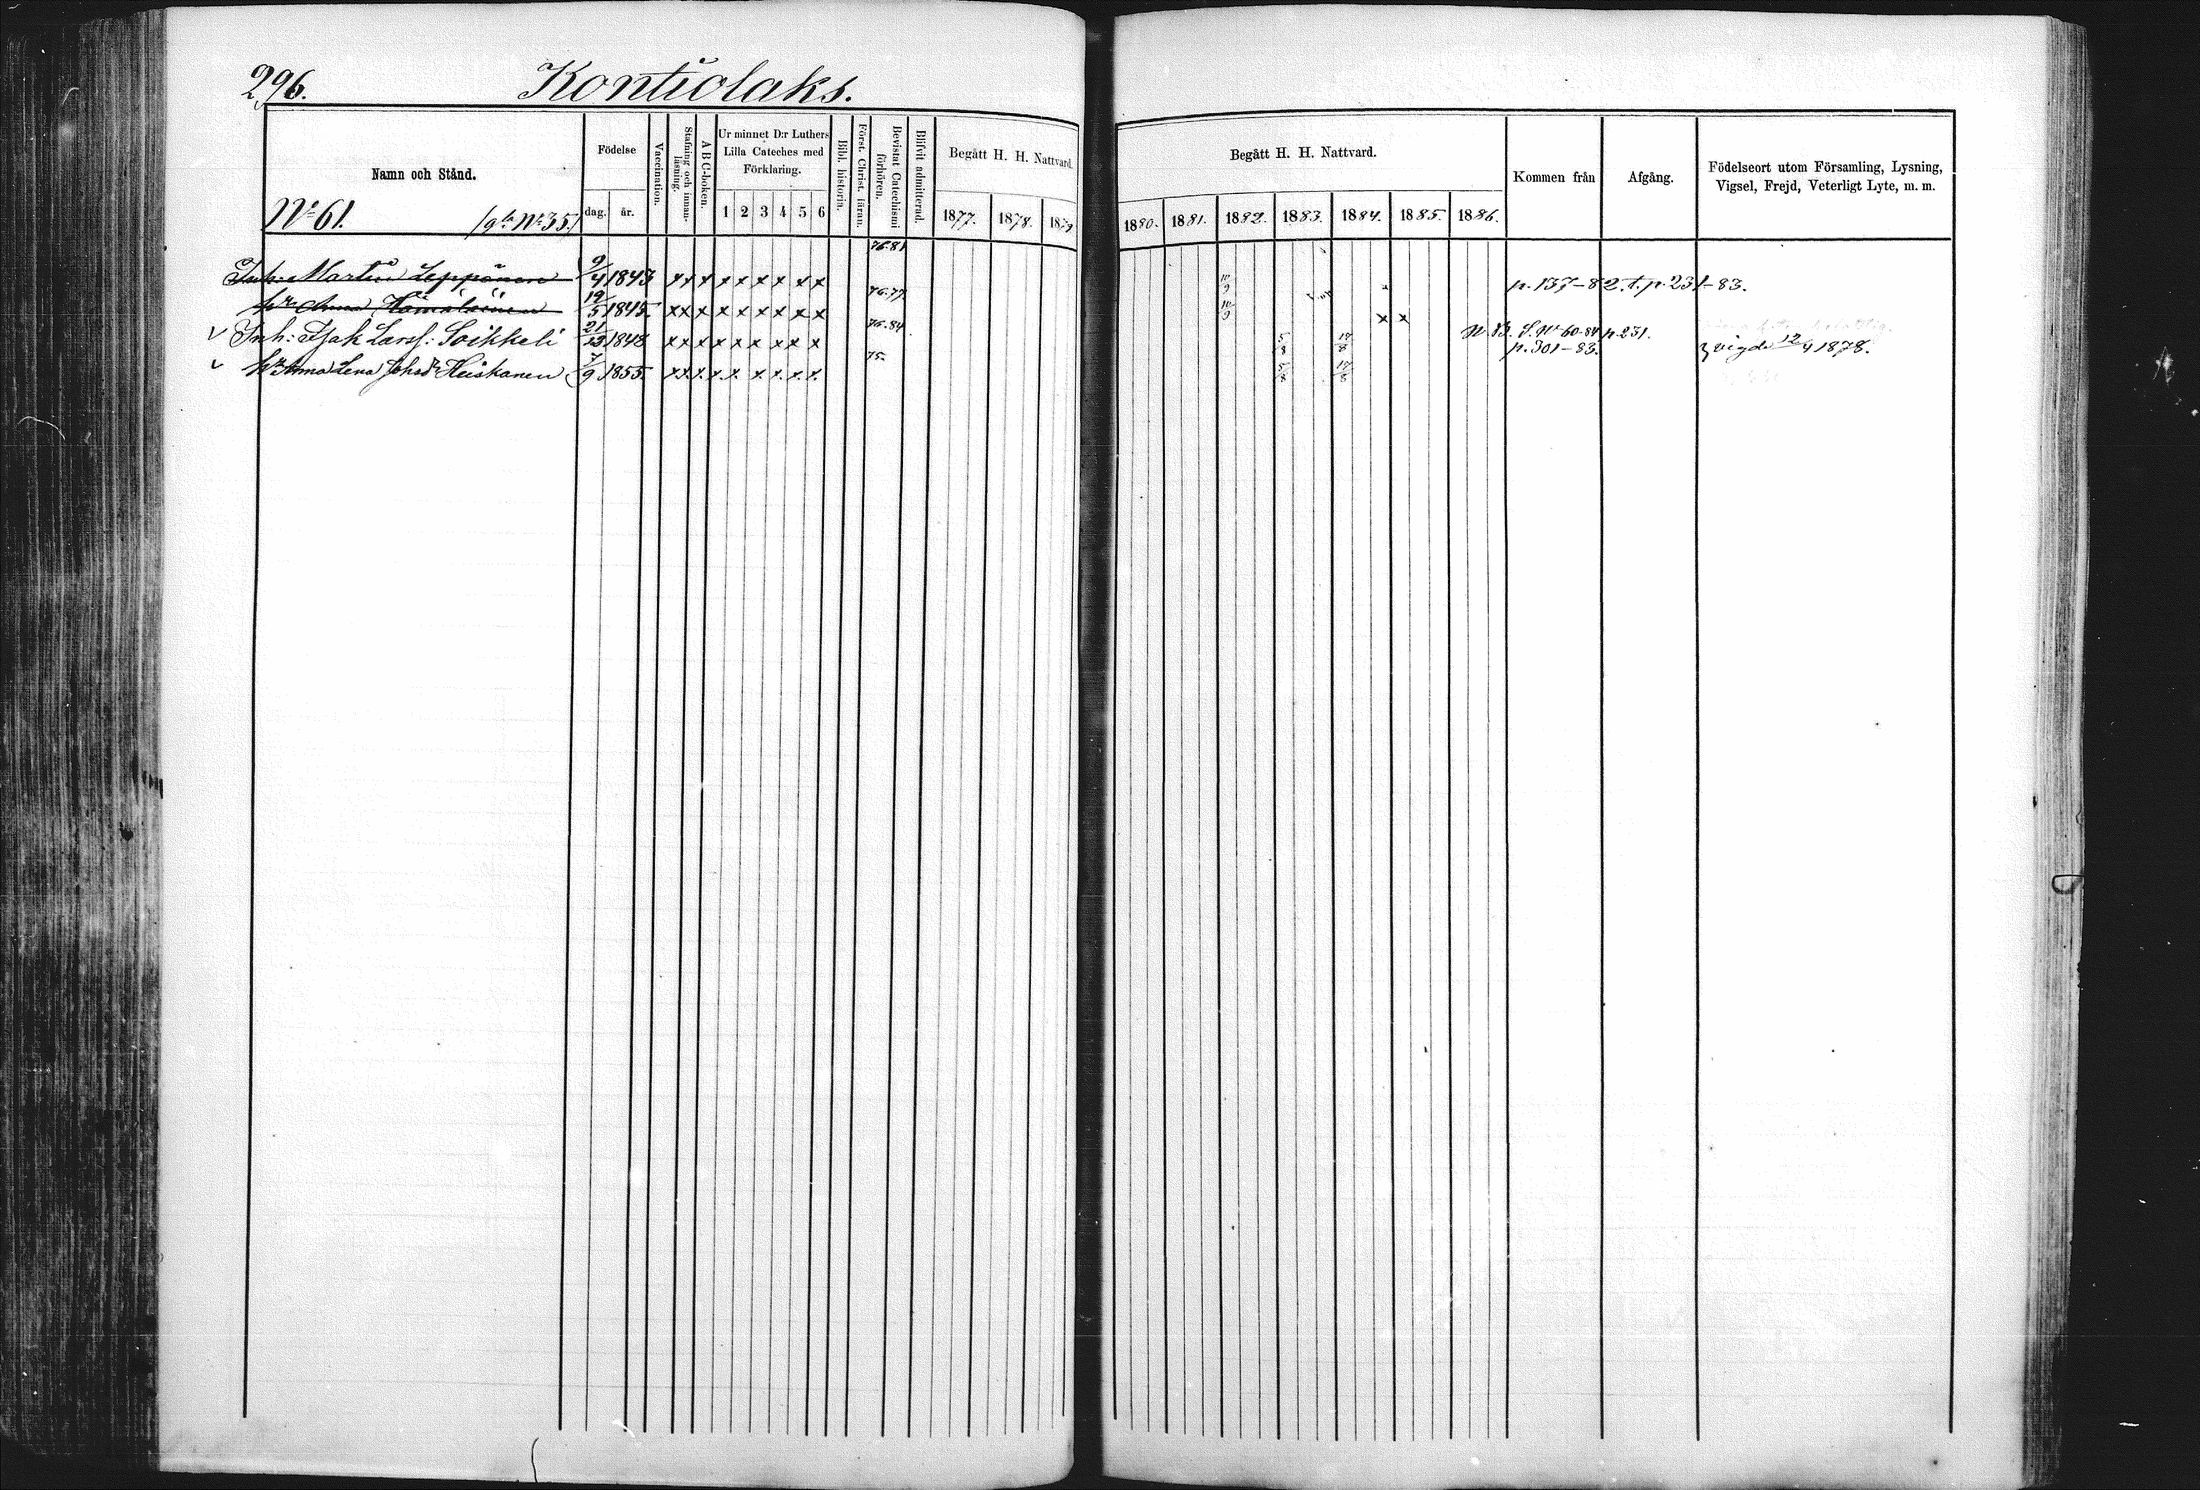 296. Kontiolaks.
Namn och Stånd.
Födelse
dag. år.
Vaccination.
Stafning och innanläsning.
ABC-boken.
Ur minnet D:r Luthers
Lilla Cateches med
Förklaring.
1 2 3 4 5 6
Bibl. historia.
Först. Christ. läran.
Bevistat Catechismi förhören.
Blifvit admitterad.
Begått H. H. Nattvard.
1877. 1878. 1879
Begått H. H. Nattvard.
1880. 1881. 1882. 1883. 1884. 1885. 1886.
Kommen från
Afgång.
Födelseort utom Församling, Lysning,
Vigsel, Frejd, Veterligt Lyte, m. m.
No 61. (gla No 35.)
Inh: Martin Leppänen 9/4 1843 x x x x x x x x x 76.81 10/9 p. 137-82. t. p. 231-83.
hu Anna Hämäläinen 19/5 1845. x x x x x x x x x 76.77. 10/9 x x
Inh: Isak Larss: Soikkeli 21/12 1848 x x x x x x x x x 76.84. 5/8 17/8 N. 83. S. No 60-84 p. 231.
p. 301-83. vigde 12/4 1878.
hu Anna Lena Johsdr Heiskanen 7/9 1855. x x x x x x x x x 75. 5/8 17/8